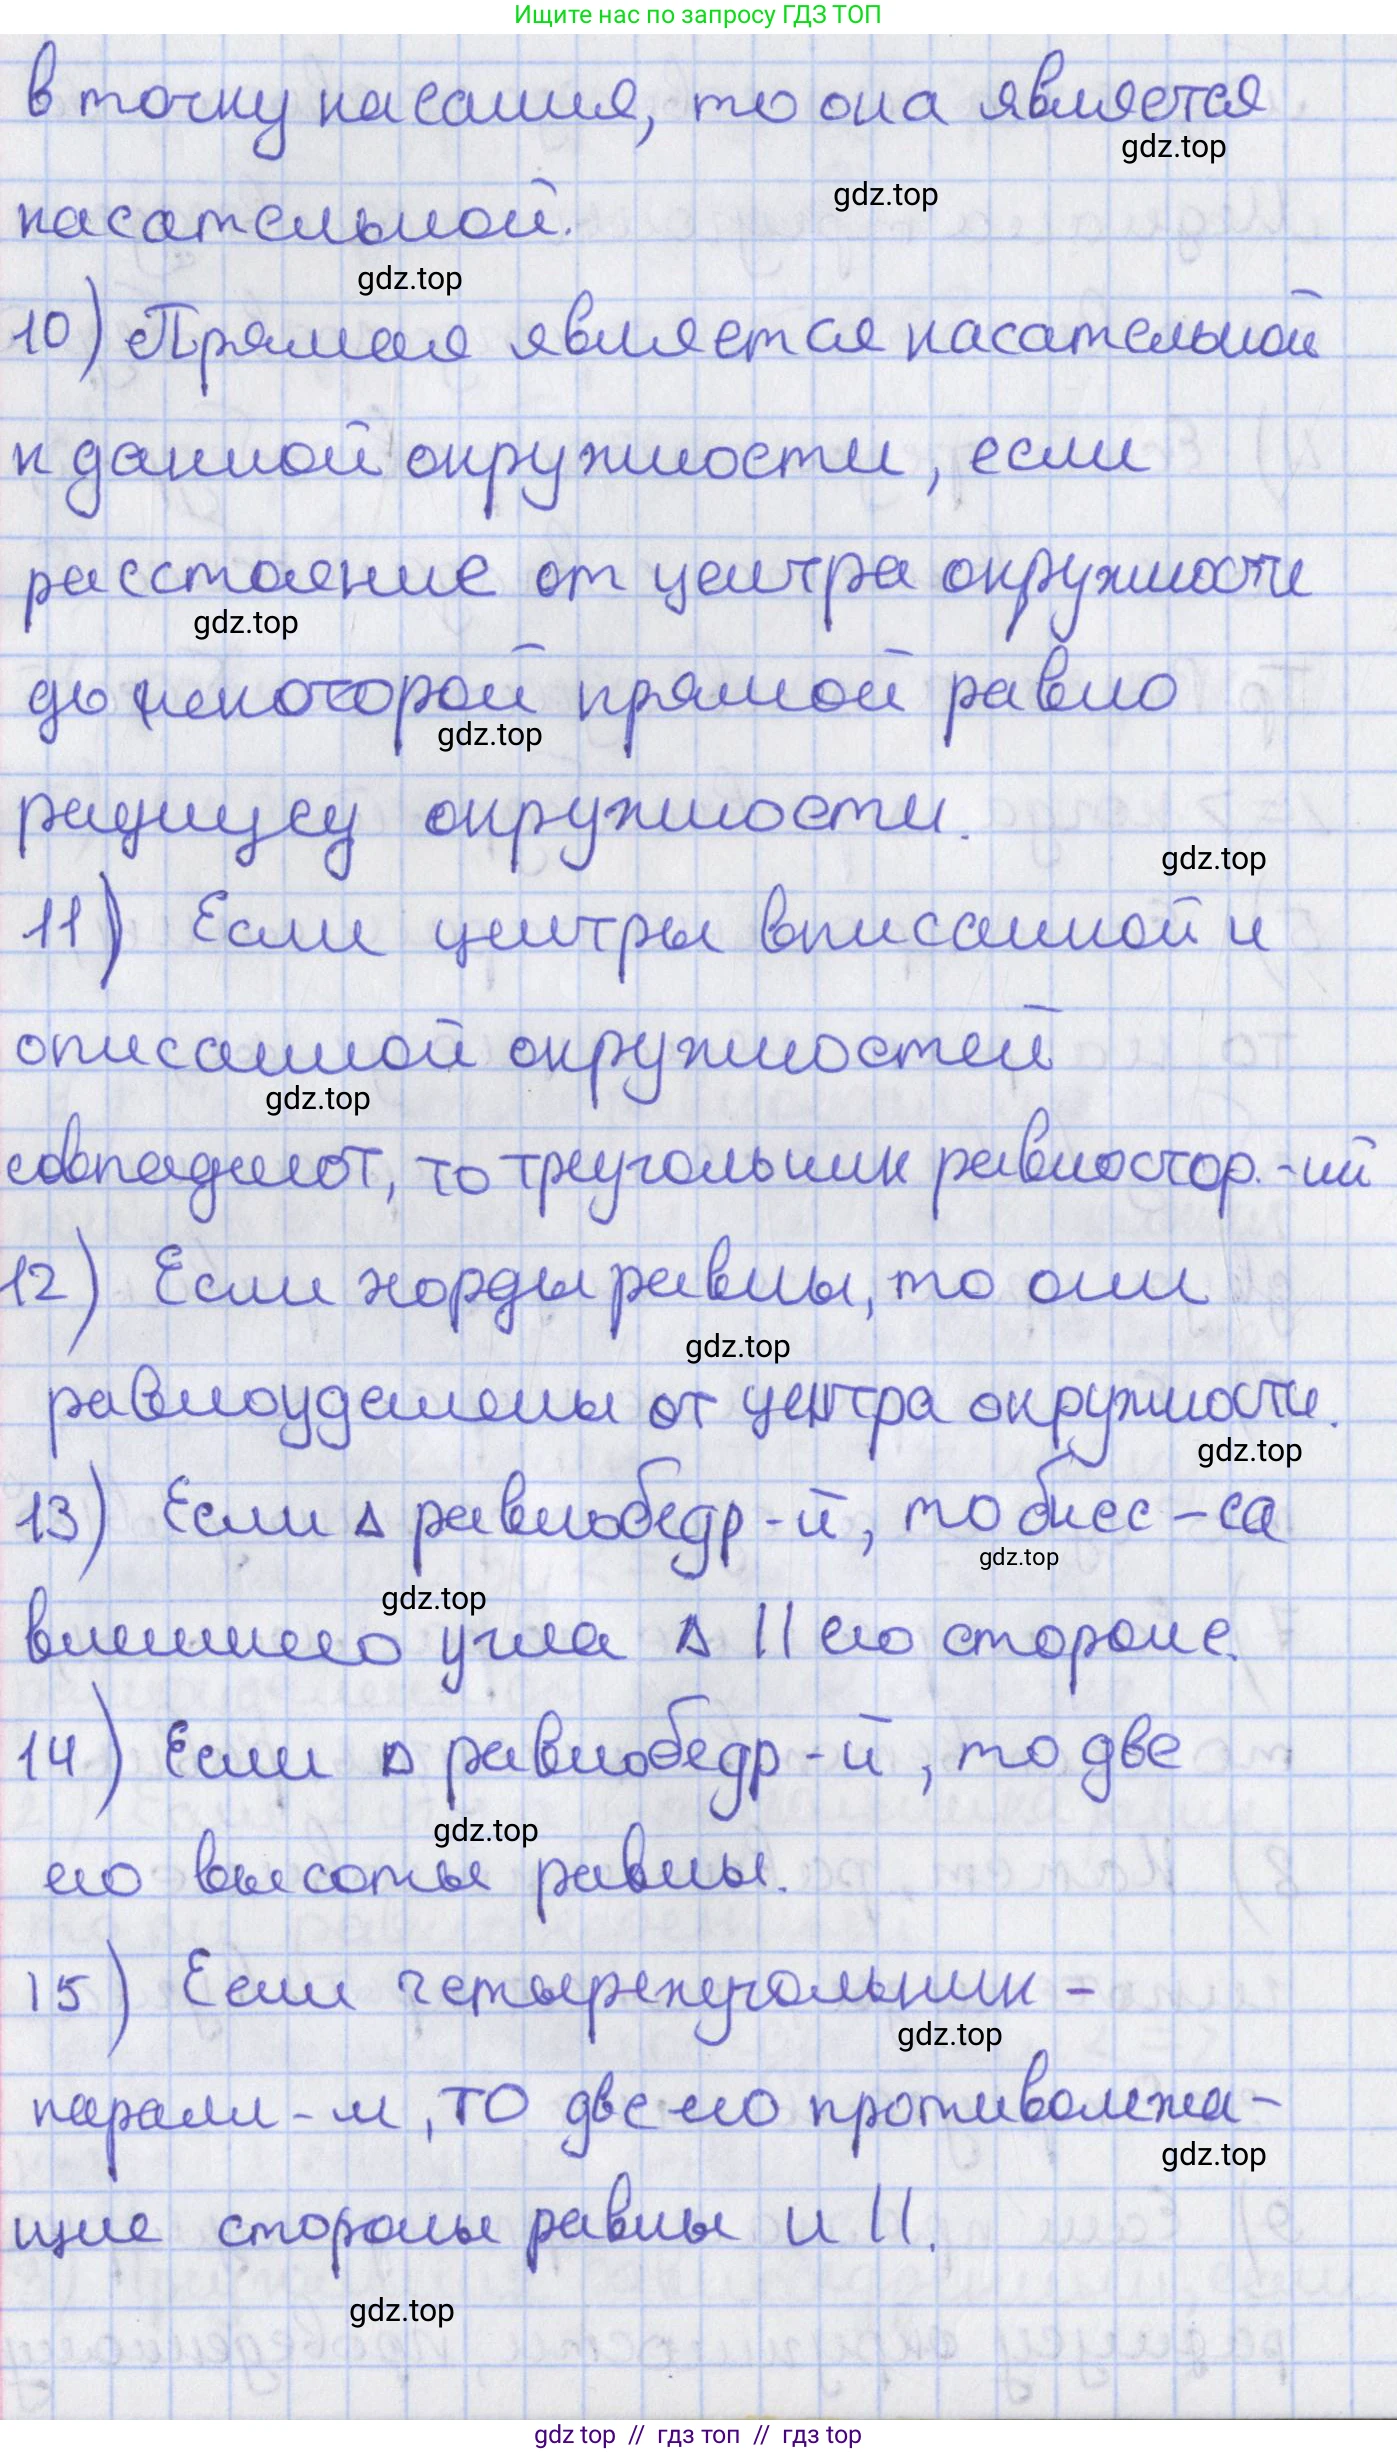 Ищите нас по запросу ГДЗ ТОП
в точку касания, то она является
gdz.top
gdz.top
касательной.
gdz.top
10) Прямая является касательной
к данной окружности, если
расстояние от центра окружности
gdz.top
до некоторой прямой равно
gdz.top
радиусу окружности.
gdz.top
11) Если центры вписанной и
описанной окружностей
gdz.top
совпадают, то треугольник равностор.-ий
12) Если хорды равны, то они
gdz.top
равноудалены от центра окружности.
gdz.top
13) Если Δ равнобедр-й, то бисс-са
gdz.top
gdz.top
внешнего угла Δ || его стороне.
14) Если Δ равнобедр-й, то две
gdz.top
его высоты равны.
15) Если четырехугольник -
gdz.top
паралл-м, то две его противолежа-
gdz.top
щие стороны равны и ||.
gdz.top
gdz top // гдз топ // гдз top